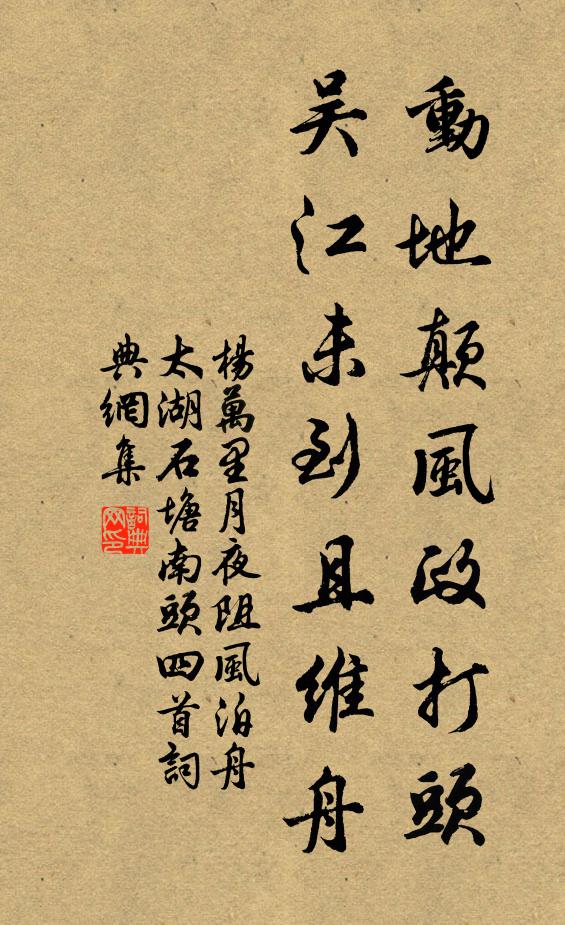 動地顛風政打頭
吴江未到且維舟
楊萬里月夜阻風泊舟
太湖石塘南頭四首詞
典網集
詞典网印